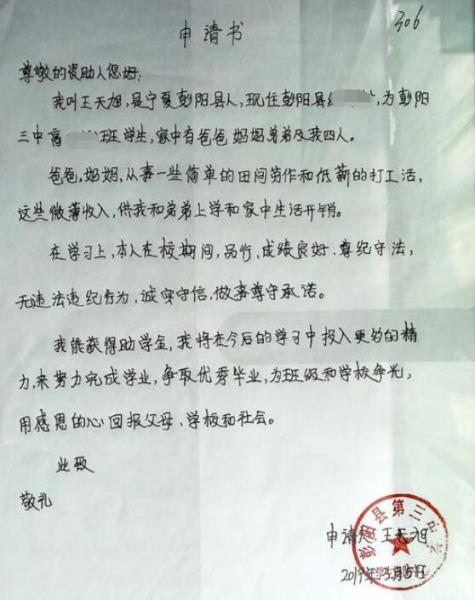 306
申请书
尊敬的资助人您好:
我叫王天旭,是宁夏彭阳县人,现住彭阳县,为彭阳
三中高班学生,家中有爸爸妈妈弟弟及我四人。
爸爸,妈妈,从事一些简单的田间劳作和低薪的打工活,
这些微薄收入,供我和弟弟上学和家中生活开销。
在学习上,本人在校期间,品行,成绩良好、尊纪守法,
无违法违纪行为,诚实守信,做事尊守承诺。
我能获得助学金,我将在今后的学习中投入更多的精
力,来努力完成学业,争取优秀毕业,为班级和学校争光,
用感恩的心回报父母、学校和社会。
此致
敬礼
彭阳县第三中
申请人 王天旭
2019年3月5日